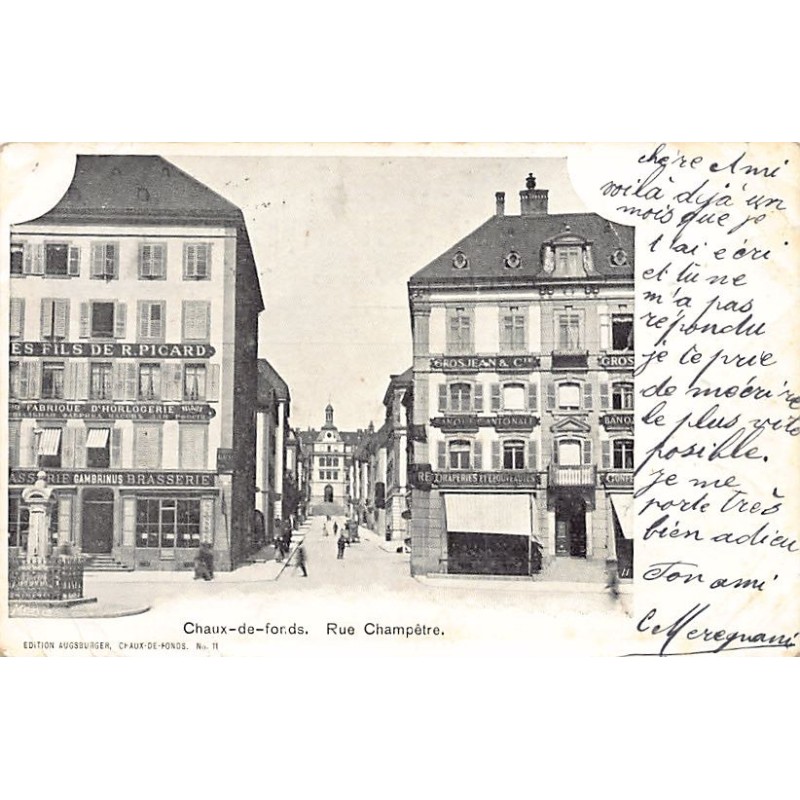 LES FILS DE R. PICARD
FABRIQUE D'HORLOGERIE
BRASSERIE GAMBRINUS BRASSERIE
GROSJEAN & Cie
GROS
BANQUE CANTONALE
BANQ
DRAPERIES ET NOUVEAUTES
CONF
Chaux-de-fonds. Rue Champêtre.
EDITION AUGSBURGER, CHAUX-DE-FONDS. No. 11
chère Ami
voilà déjà un
mois que je
t'ai ecri
et tu ne
m'a pas
répondu
je te prie
de mécrire
le plus vite
posible.
je me
porte très
bien adieu
Ton ami
C Meregnani